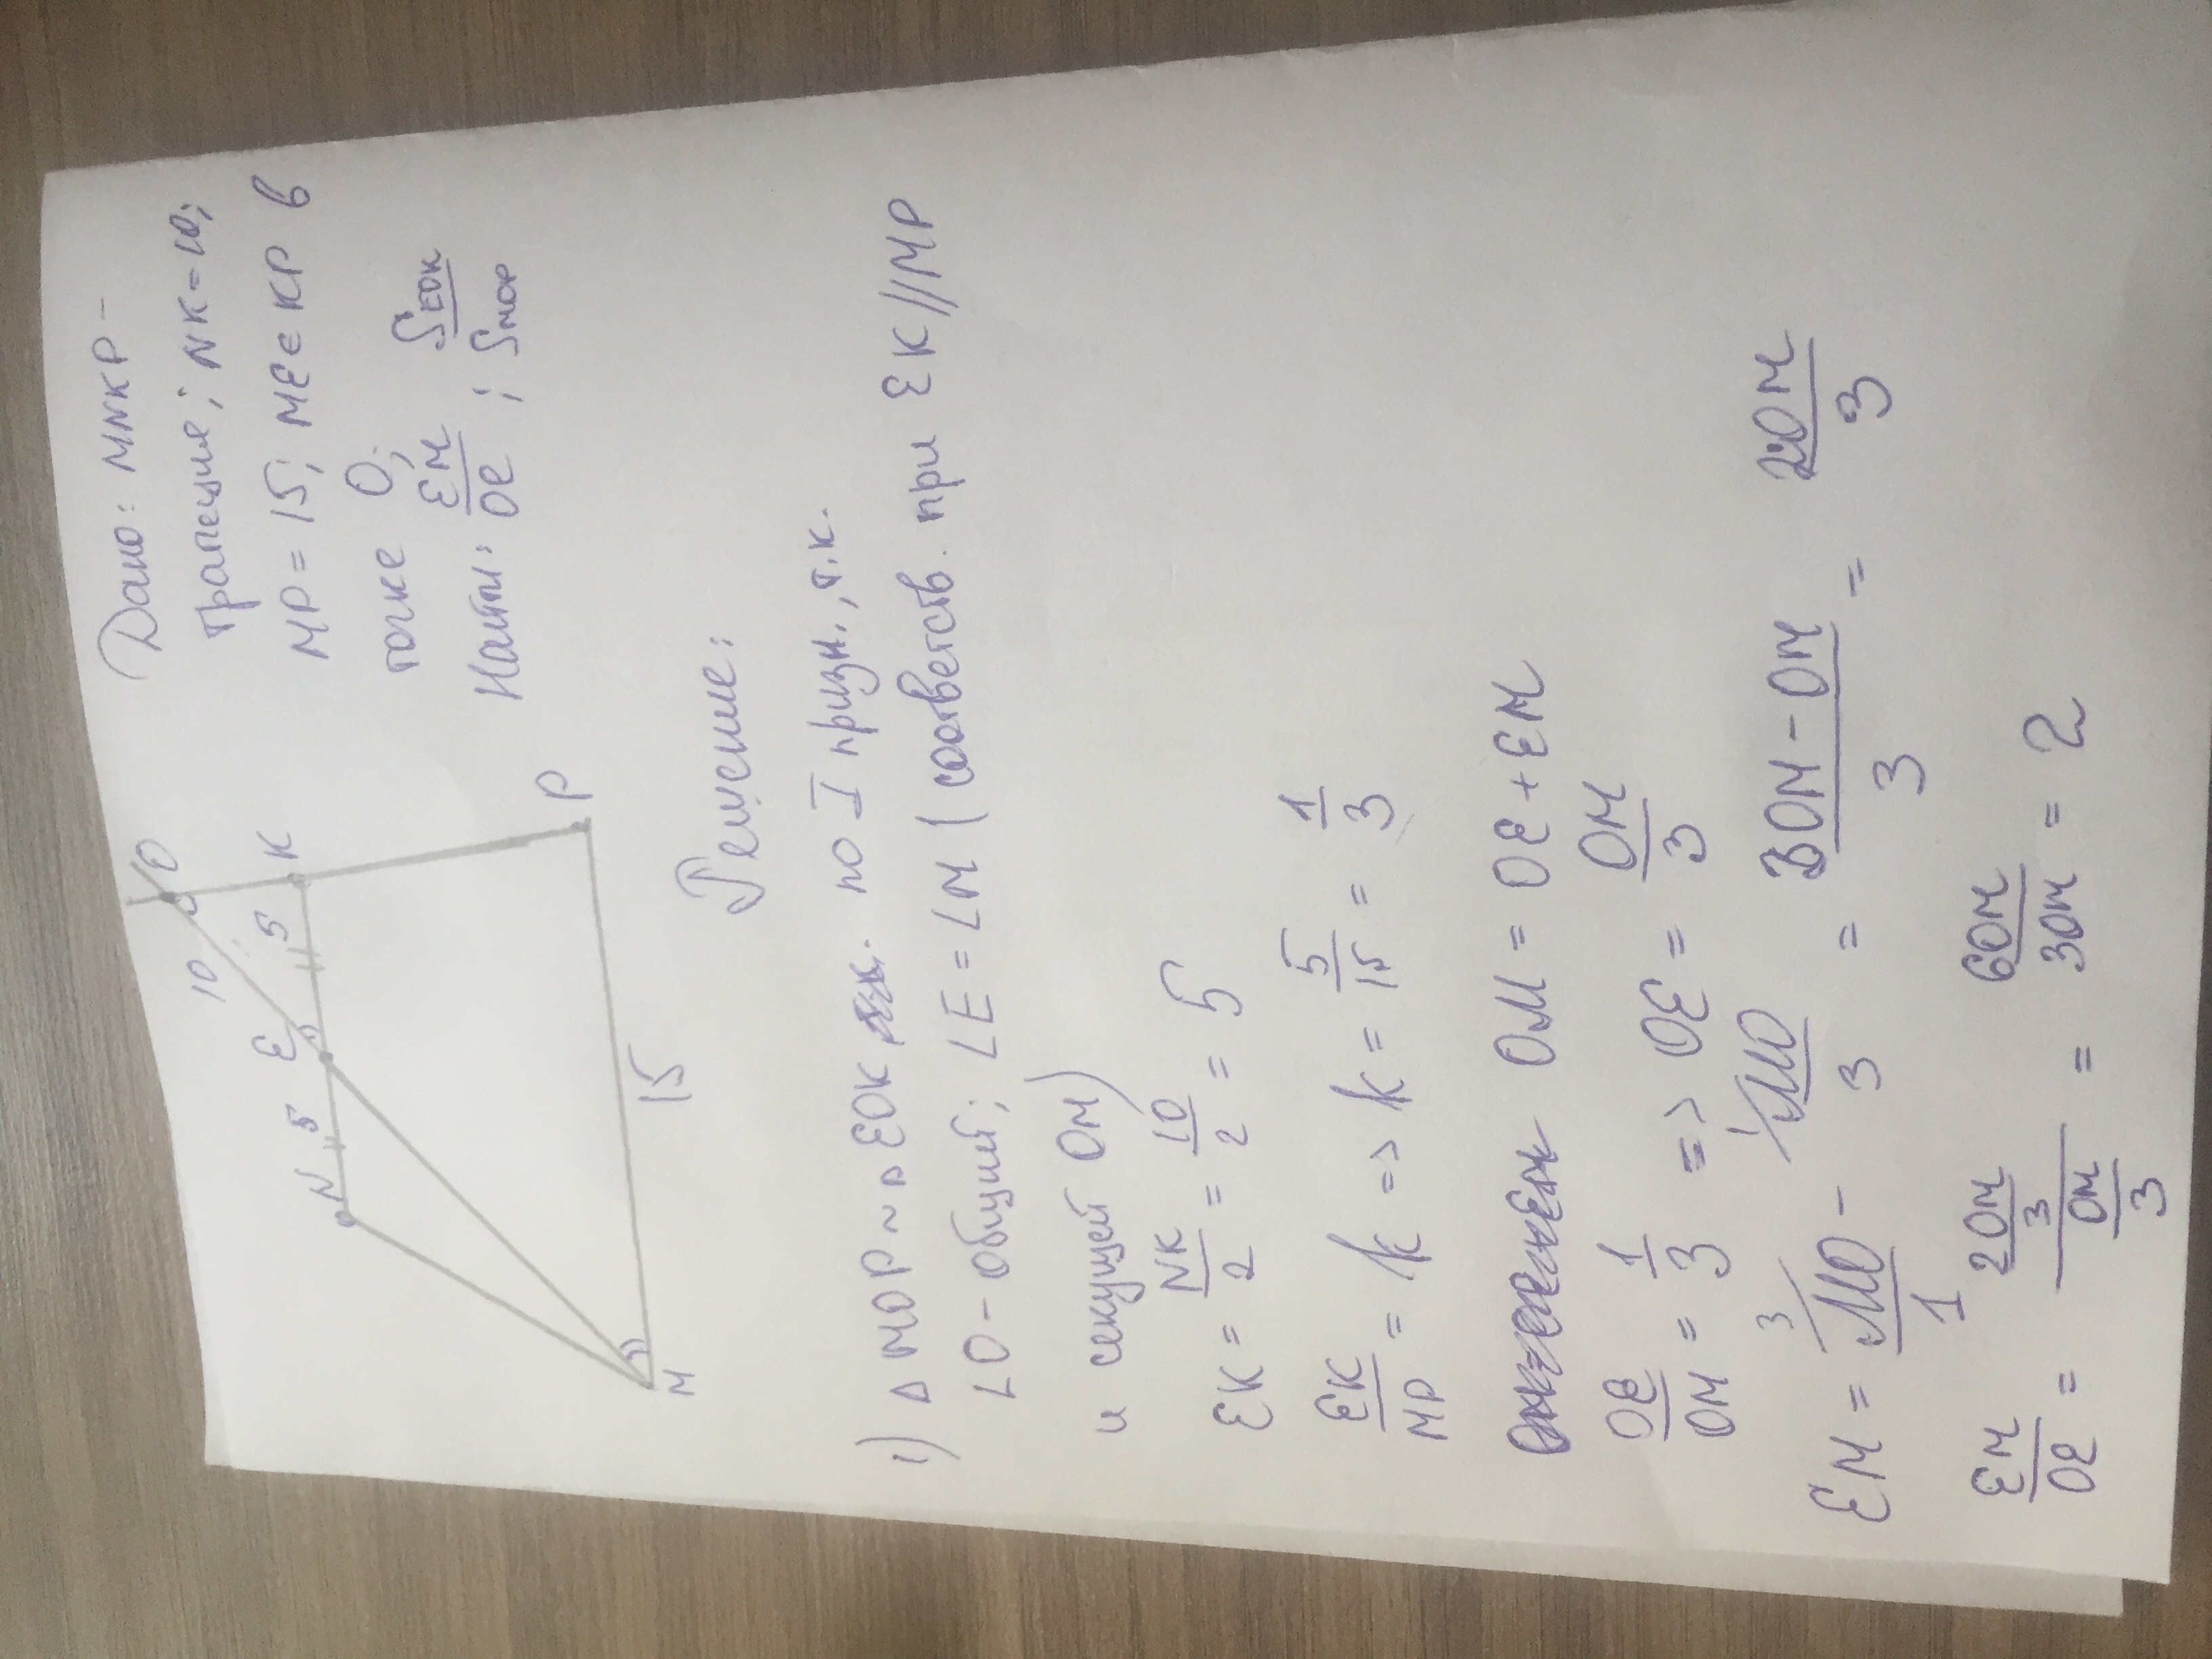 Дано: MNKP -
трапеция; NK=10;
MP = 15; ME ∈ KP в
точке O;
Найти: EM/OE ; S EOK/S MOP
O
10
E
N 5 5 K
P
M
15
Решение:
1) Δ MOP ~ Δ EOK по I призн., т.к.
∠O - общий; ∠E = ∠M (соответств. при EK//MP
и секущей OM)
EK = NK/2 = 10/2 = 5
EK/MP = k => k = 5/15 = 1/3
OM = OE + EM
OE/OM = 1/3 => OE = OM/3
EM = MO/1 - MO/3 = 3OM-OM/3 = 2OM/3
EM/OE = 2OM/3 / OM/3 = 6OM/3OM = 2